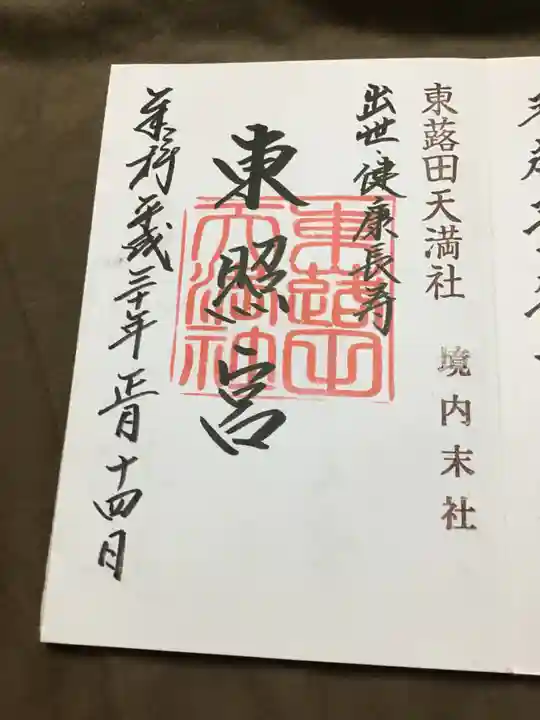 東蕗田天満社 境内末社
出世・健康長寿
東照宮
東蕗田天満神
業拝 平成三十年 正月 十四日